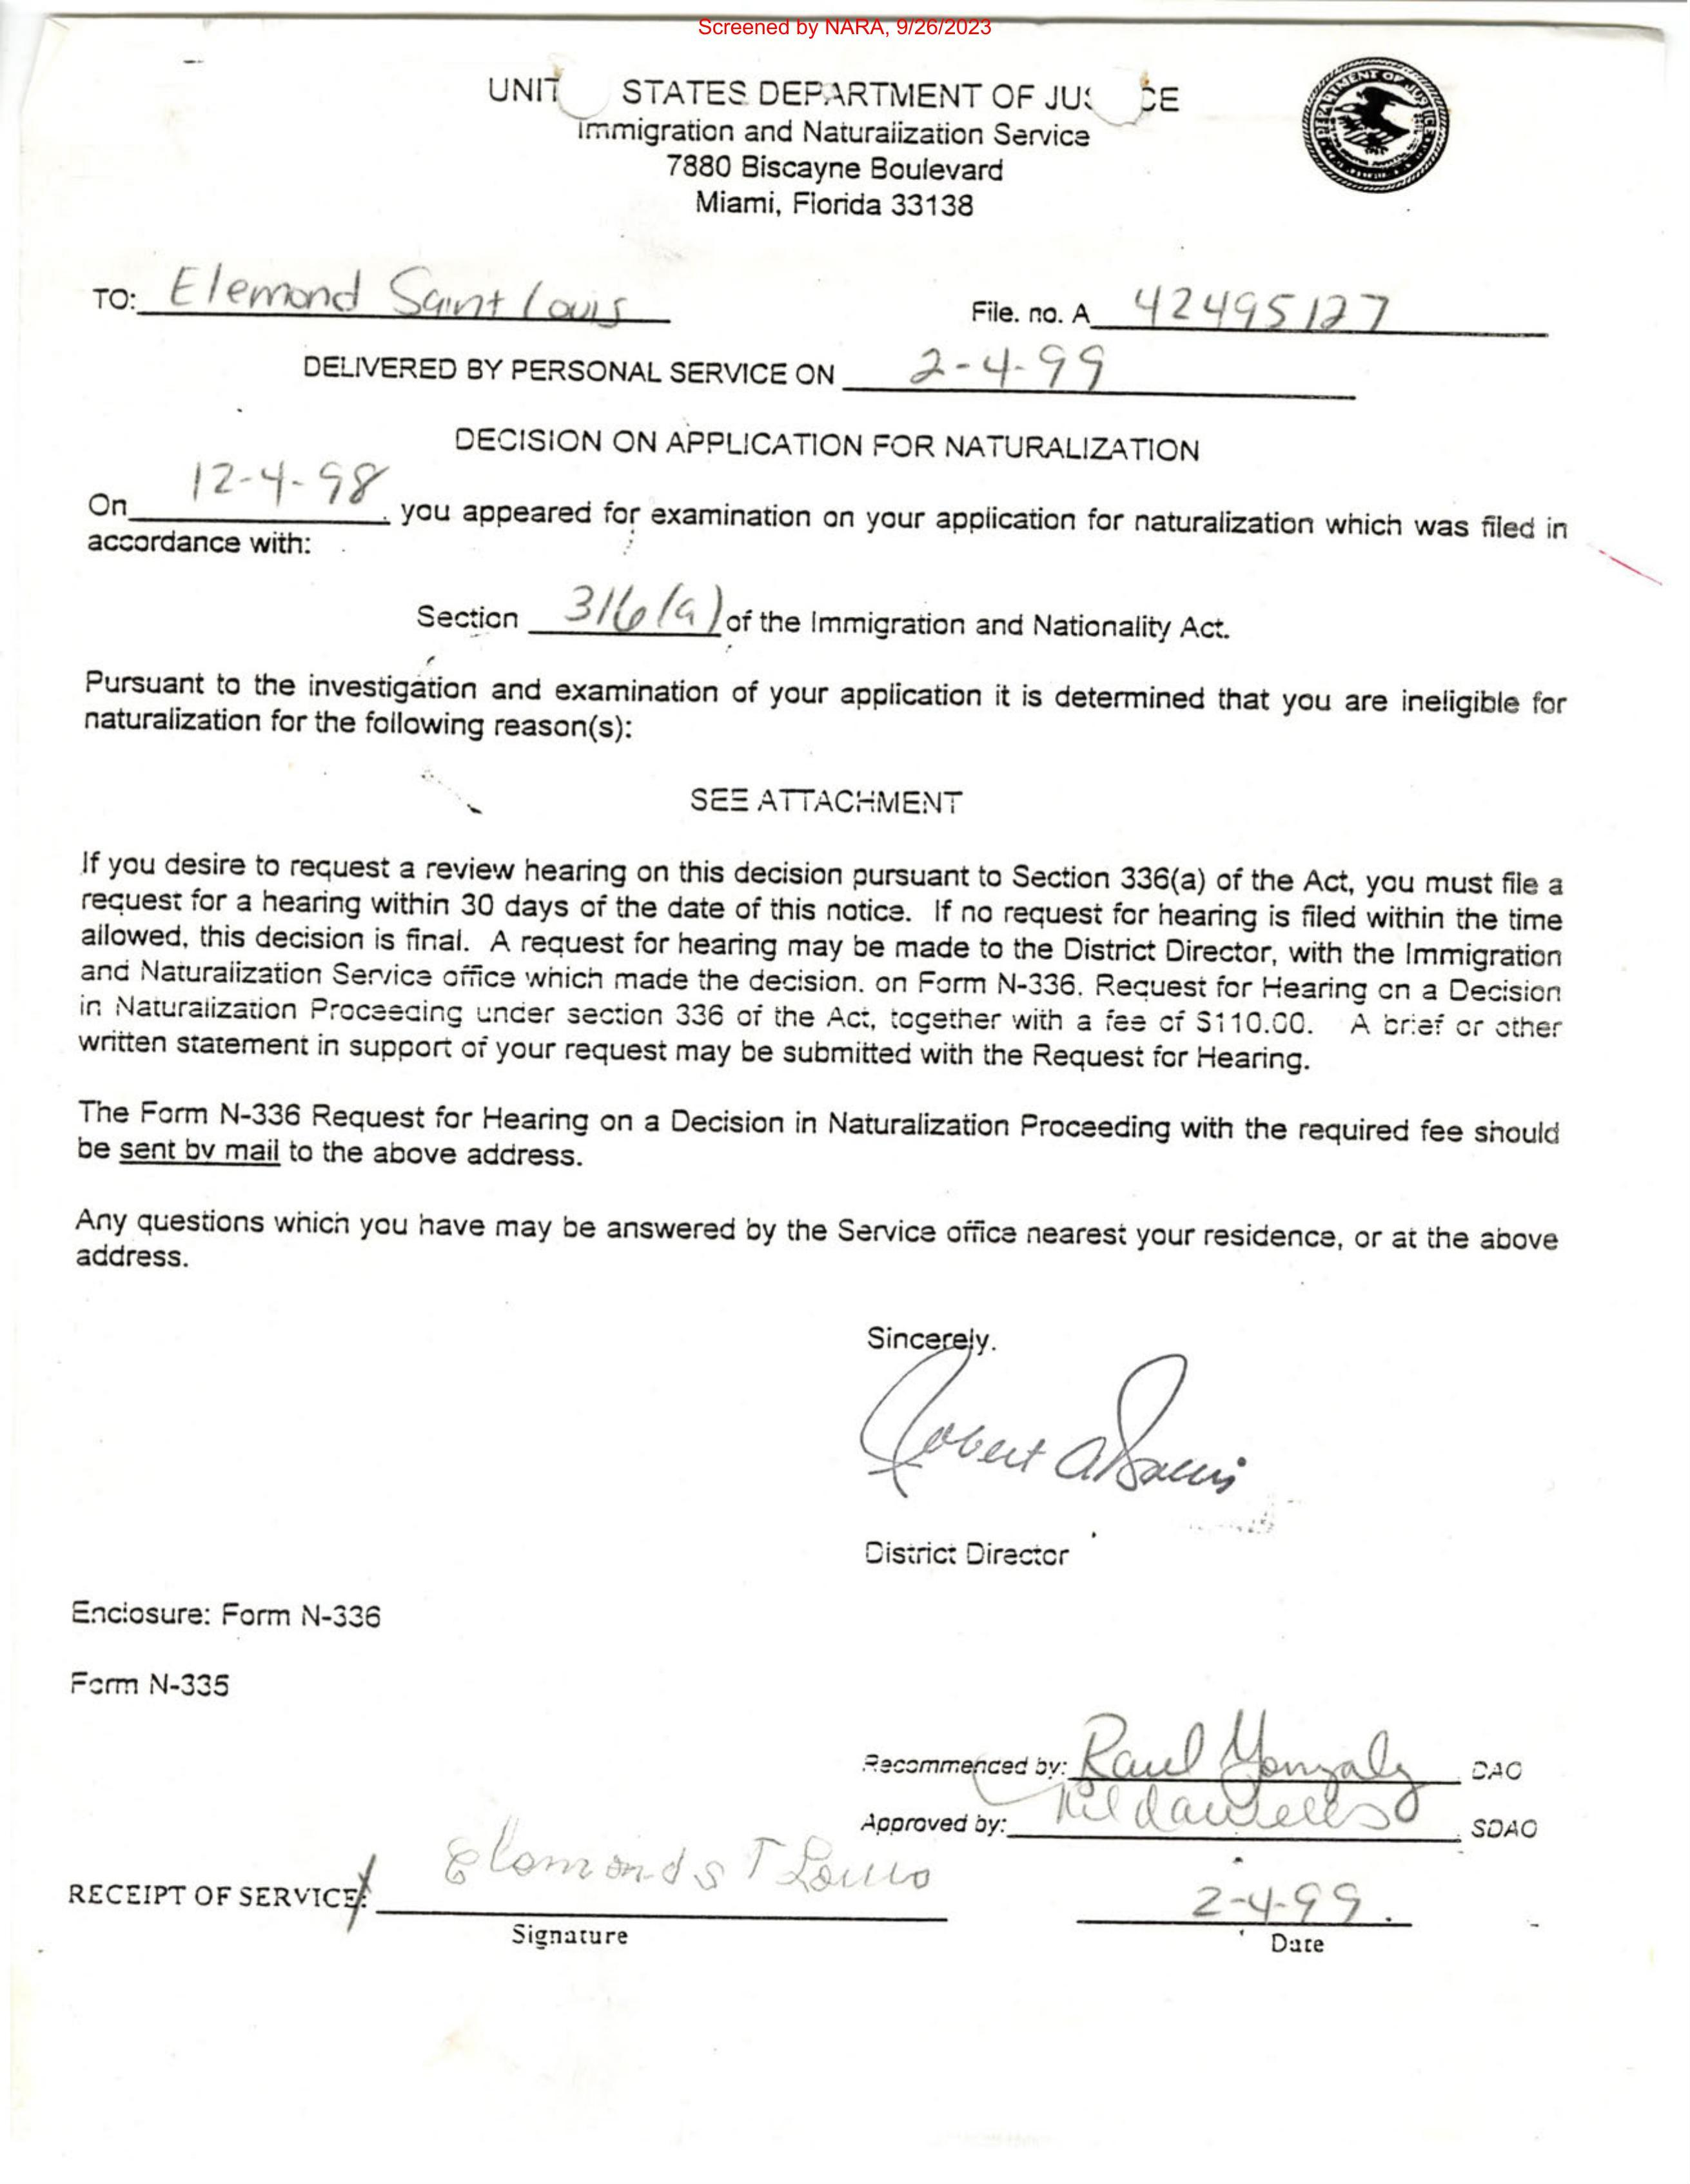 Screened by NARA, 9/26/2023
UNIT STATES DEPARTMENT OF JUS CE
Immigration and Naturalization Service
7880 Biscayne Boulevard
Miami, Florida 33138
TO: Elemond Saint Louis File. no. A 42495127
DELIVERED BY PERSONAL SERVICE ON 2-4-99
DECISION ON APPLICATION FOR NATURALIZATION
On 12-4-98, you appeared for examination on your application for naturalization which was filed in
accordance with:
Section 316(a) of the Immigration and Nationality Act.
Pursuant to the investigation and examination of your application it is determined that you are ineligible for
naturalization for the following reason(s):
SEE ATTACHMENT
If you desire to request a review hearing on this decision pursuant to Section 336(a) of the Act, you must file a
request for a hearing within 30 days of the date of this notice. If no request for hearing is filed within the time
allowed, this decision is final. A request for hearing may be made to the District Director, with the Immigration
and Naturalization Service office which made the decision. on Form N-336. Request for Hearing on a Decision
in Naturalization Proceeding under section 336 of the Act, together with a fee of $110.00. A brief or other
written statement in support of your request may be submitted with the Request for Hearing.
The Form N-336 Request for Hearing on a Decision in Naturalization Proceeding with the required fee should
be sent by mail to the above address.
Any questions which you have may be answered by the Service office nearest your residence, or at the above
address.
Sincerely.
Robert A
District Director
Enclosure: Form N-336
Form N-335
Recommended by: Raul Gonzalez DAO
Approved by: SDAO
RECEIPT OF SERVICE: Elemond ST Louis 2-4-99.
Signature Date